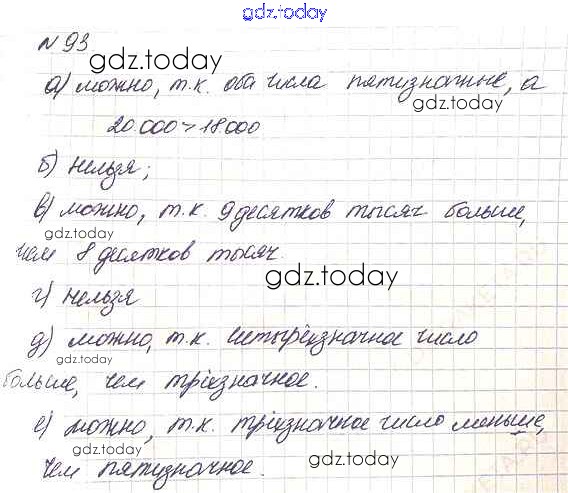 gdz.today
№ 93
gdz.today
а) можно, т.к. оба числа пятизначные, а
gdz.today
20.000 > 18.000
б) нельзя;
в) можно, т.к. 9 десятков тысяч больше,
gdz.today
чем 8 десятков тысяч.
gdz.today
г) нельзя
д) можно, т.к. четырёхзначное число
gdz.today
больше, чем трёхзначное.
е) можно, т.к. трёхзначное число меньше,
gdz.today
чем пятизначное.
gdz.today